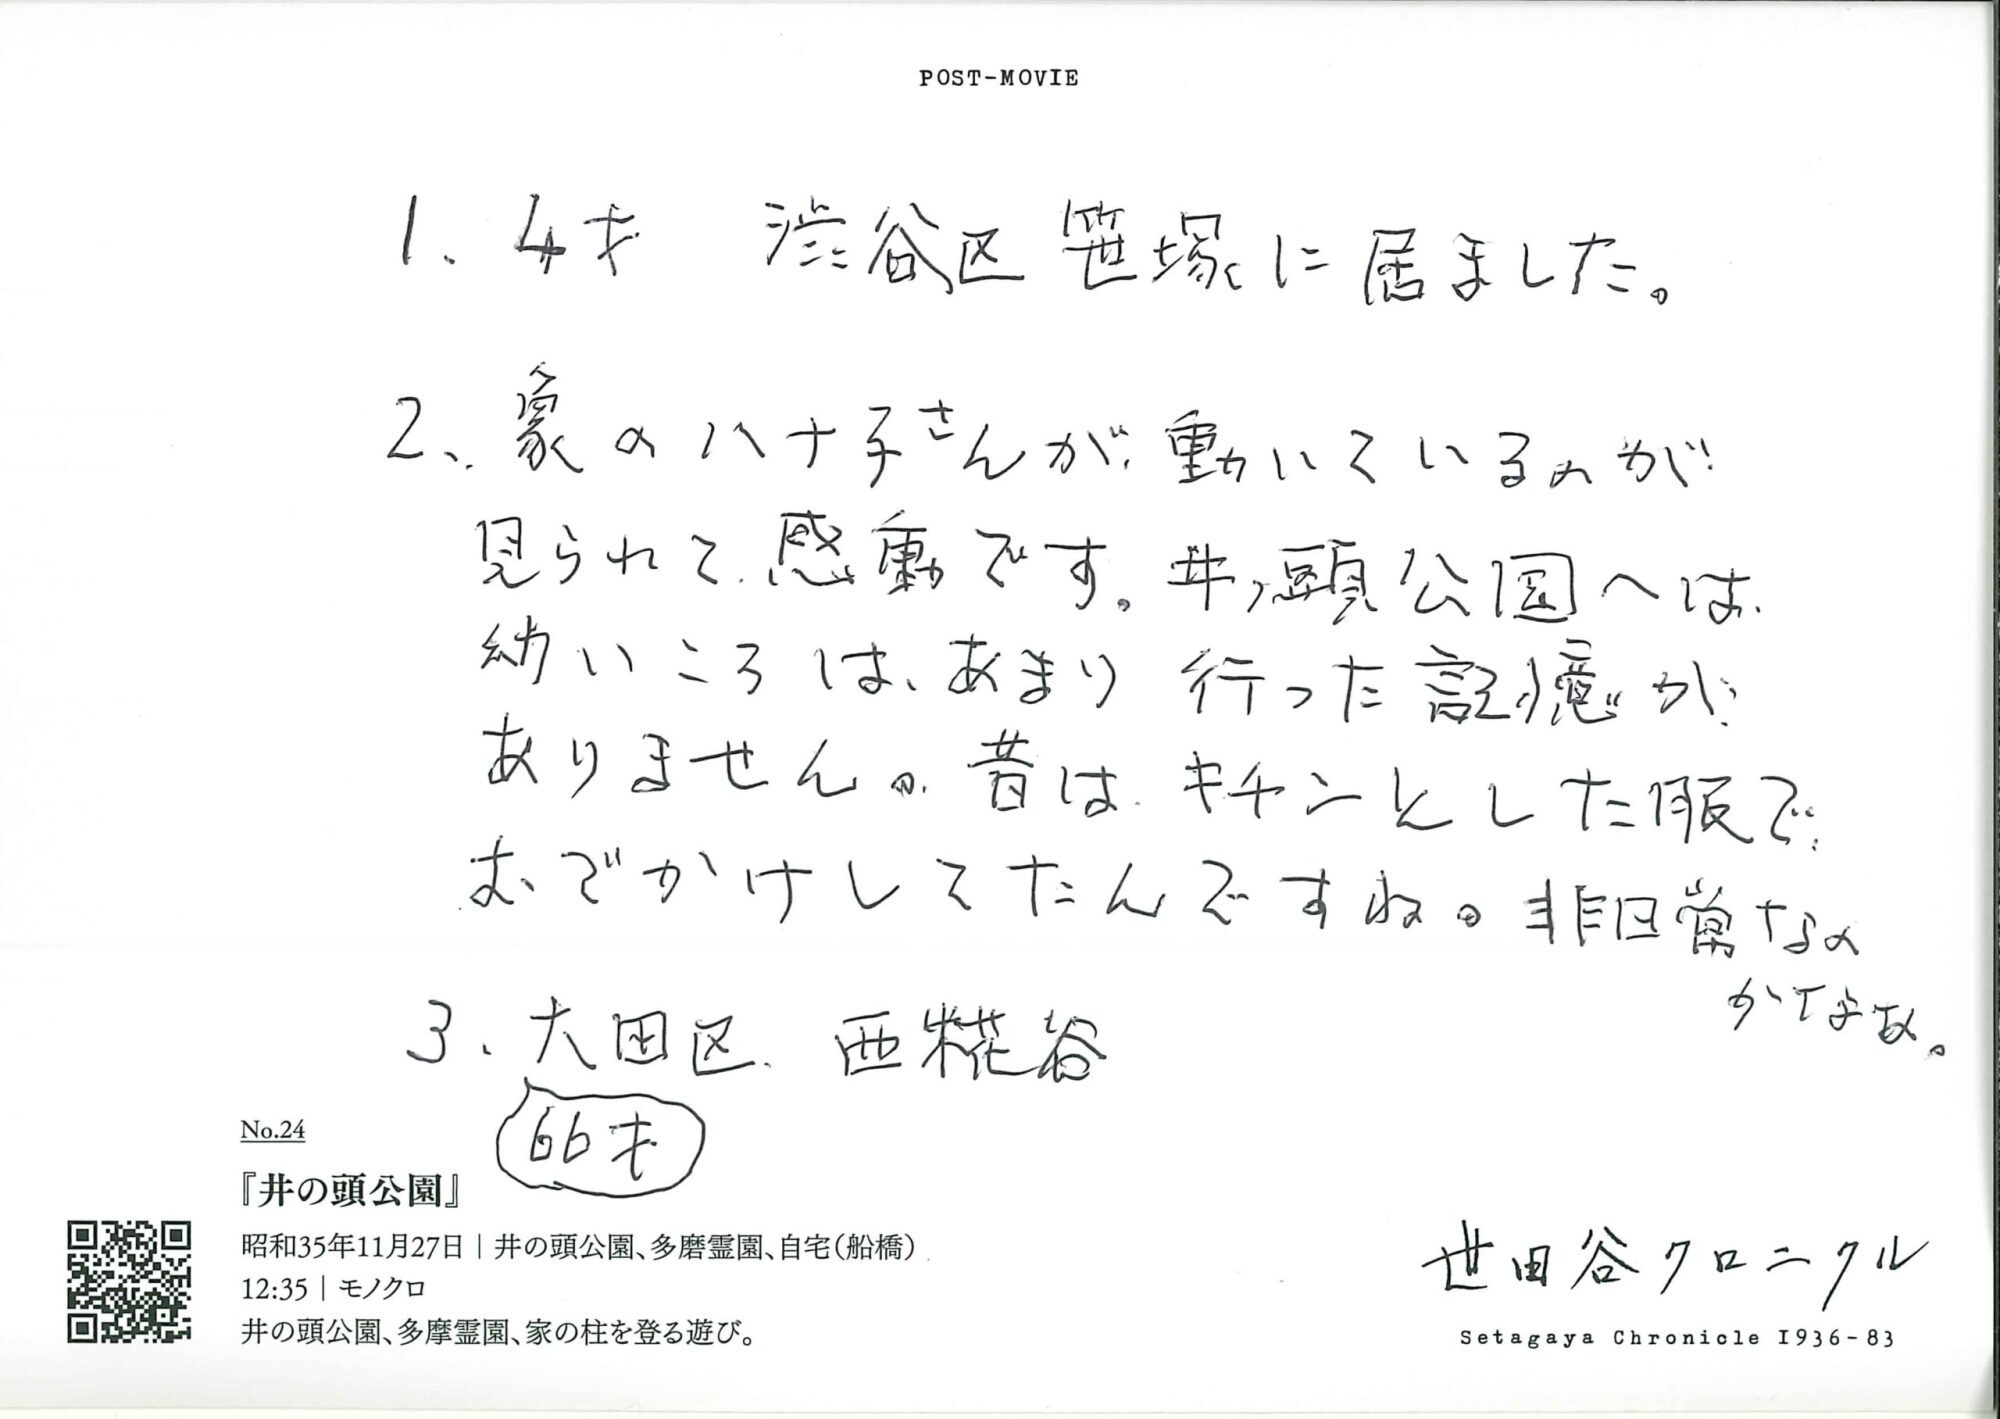 POST-MOVIE
1、4才 渋谷区笹塚に居ました。
2、象のハナ子さんが動いているのが
見られて感動です。井ノ頭公園へは
幼いころは、あまり行った記憶が
ありません。昔はキチンとした服で
おでかけしてたんですね。非日常なの
かなぁ。
3、大田区 西糀谷
66才
No.24
『井の頭公園』
昭和35年11月27日｜井の頭公園、多磨霊園、自宅（船橋）
12:35｜モノクロ
井の頭公園、多摩霊園、家の柱を登る遊び。
世田谷クロニクル
Setagaya Chronicle 1936-83